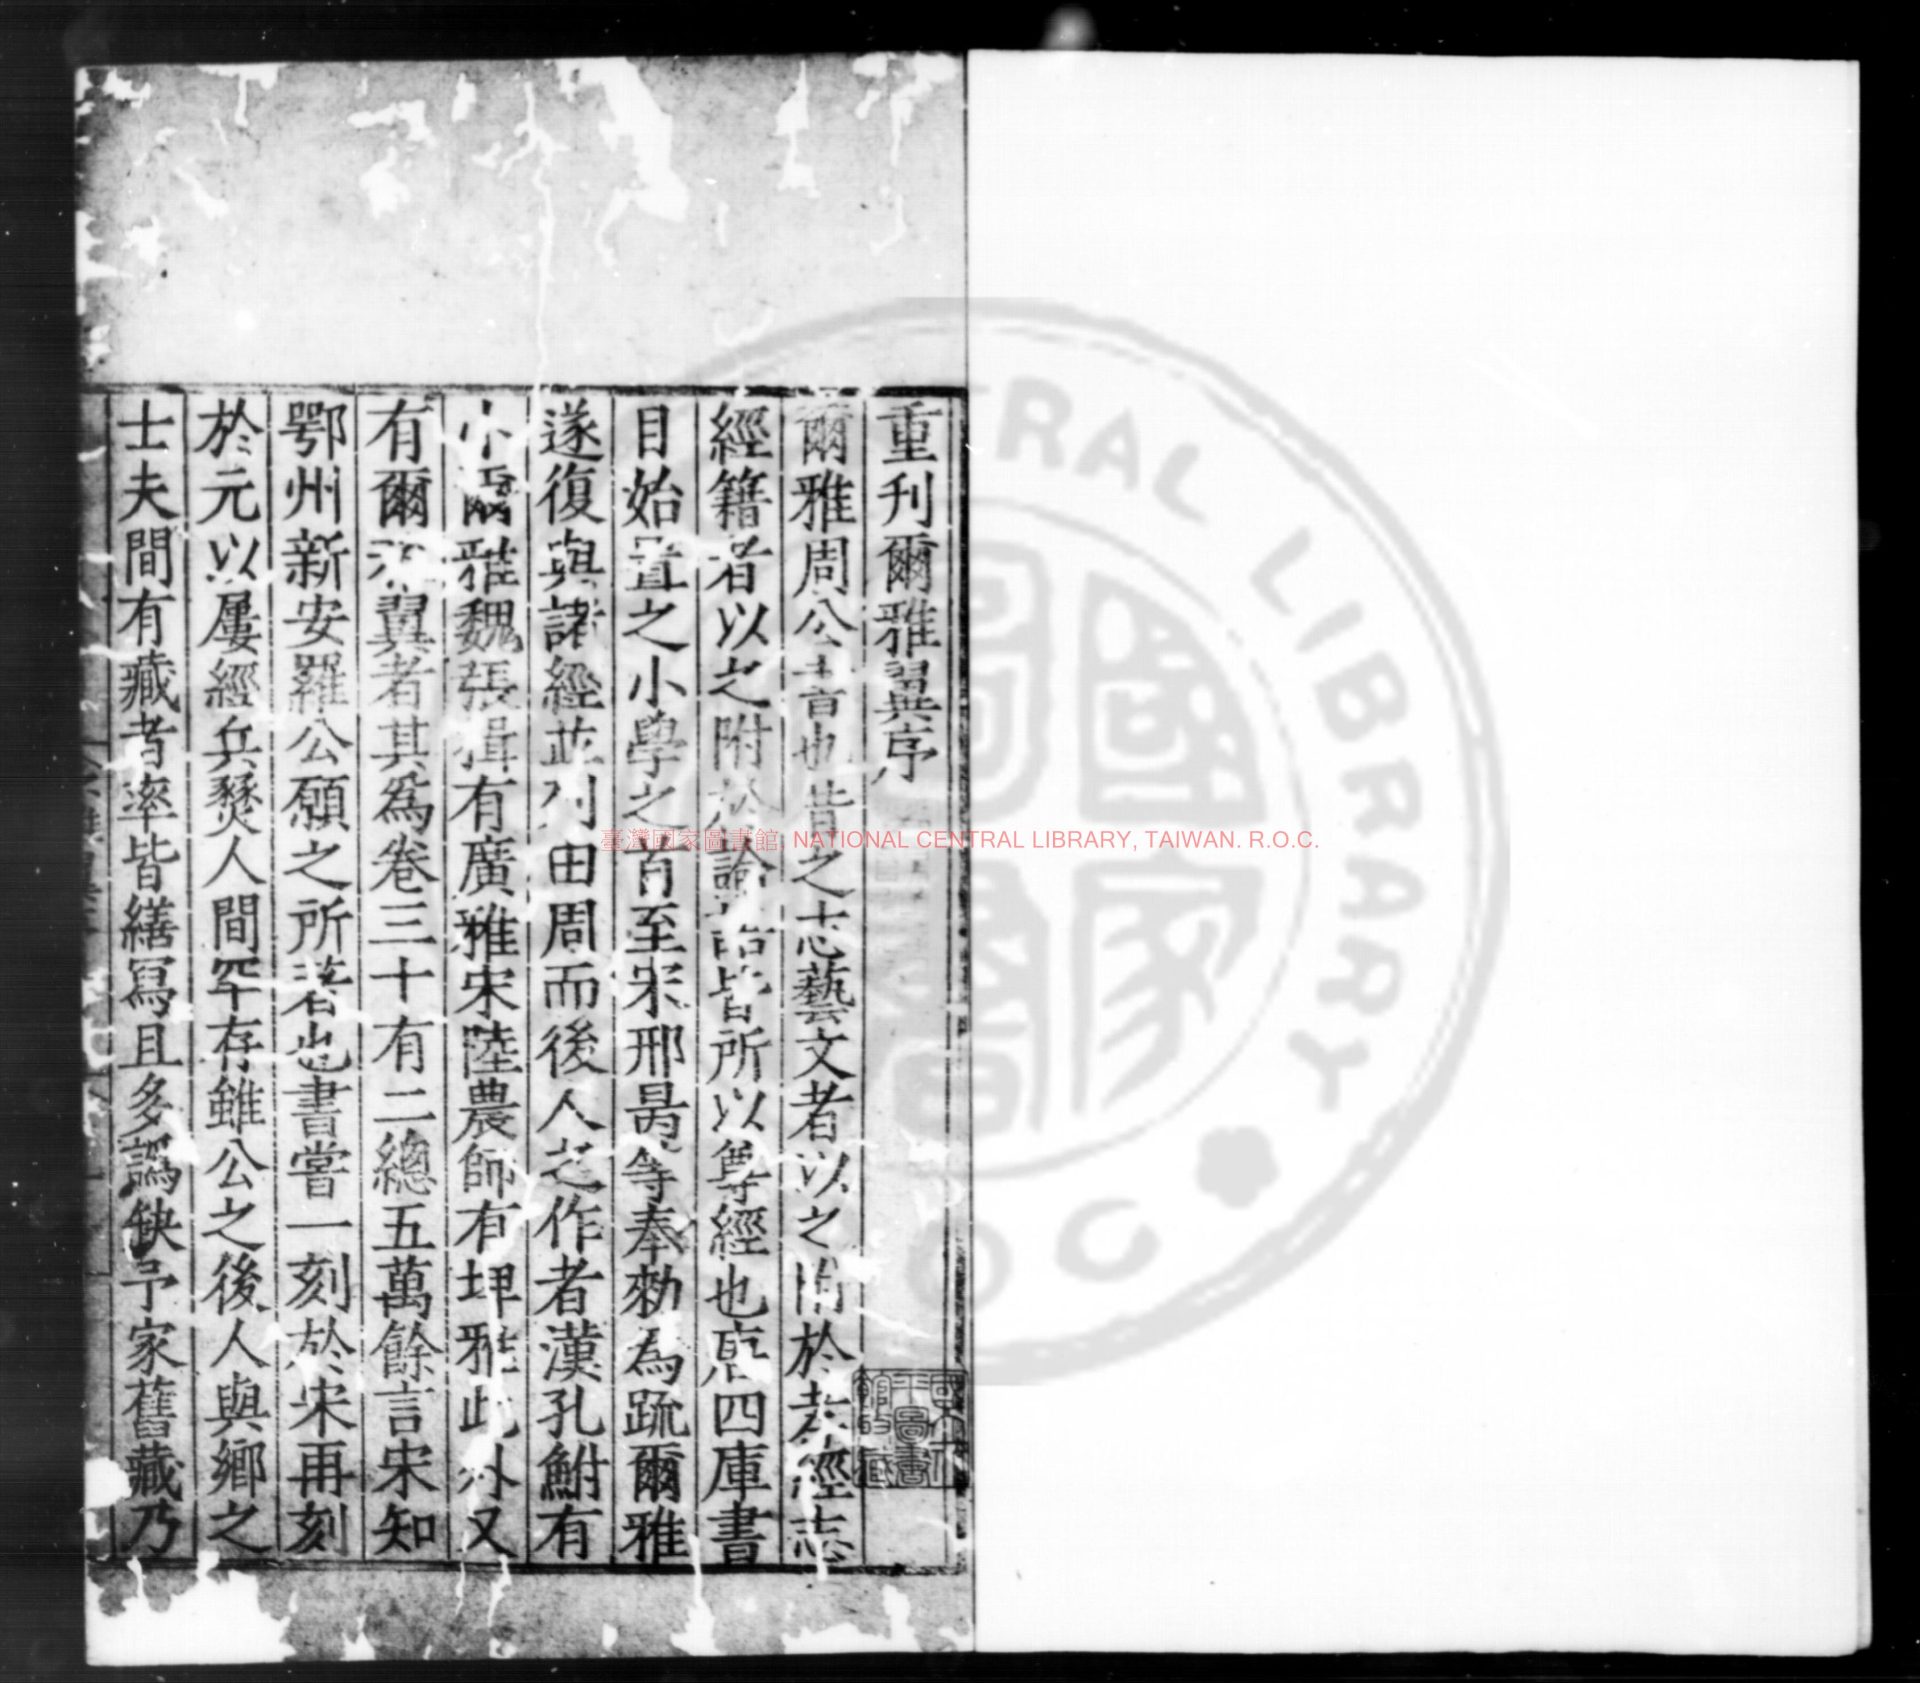 重刊爾雅翼序
爾雅周公書也昔之志藝文者以之附於孝經志
經籍者以之附於論語皆所以尊經也唐四庫書
目始置之小學之首至宋邢昺等奉勑為疏爾雅
遂復與諸經並列田周而後人之作者漢孔鮒有
小爾雅魏張揖有廣雅宋陸農師有埤雅此外又
有爾雅翼者其為卷三十有二總五萬餘言宋知
鄂州新安羅公願之所著也書嘗一刻於宋再刻
於元以屢經兵燹人間罕存雖公之後人與鄉之
士夫間有藏者率皆繕寫且多譌缺予家舊藏乃
臺灣國家圖書館, NATIONAL CENTRAL LIBRARY, TAIWAN. R.O.C.